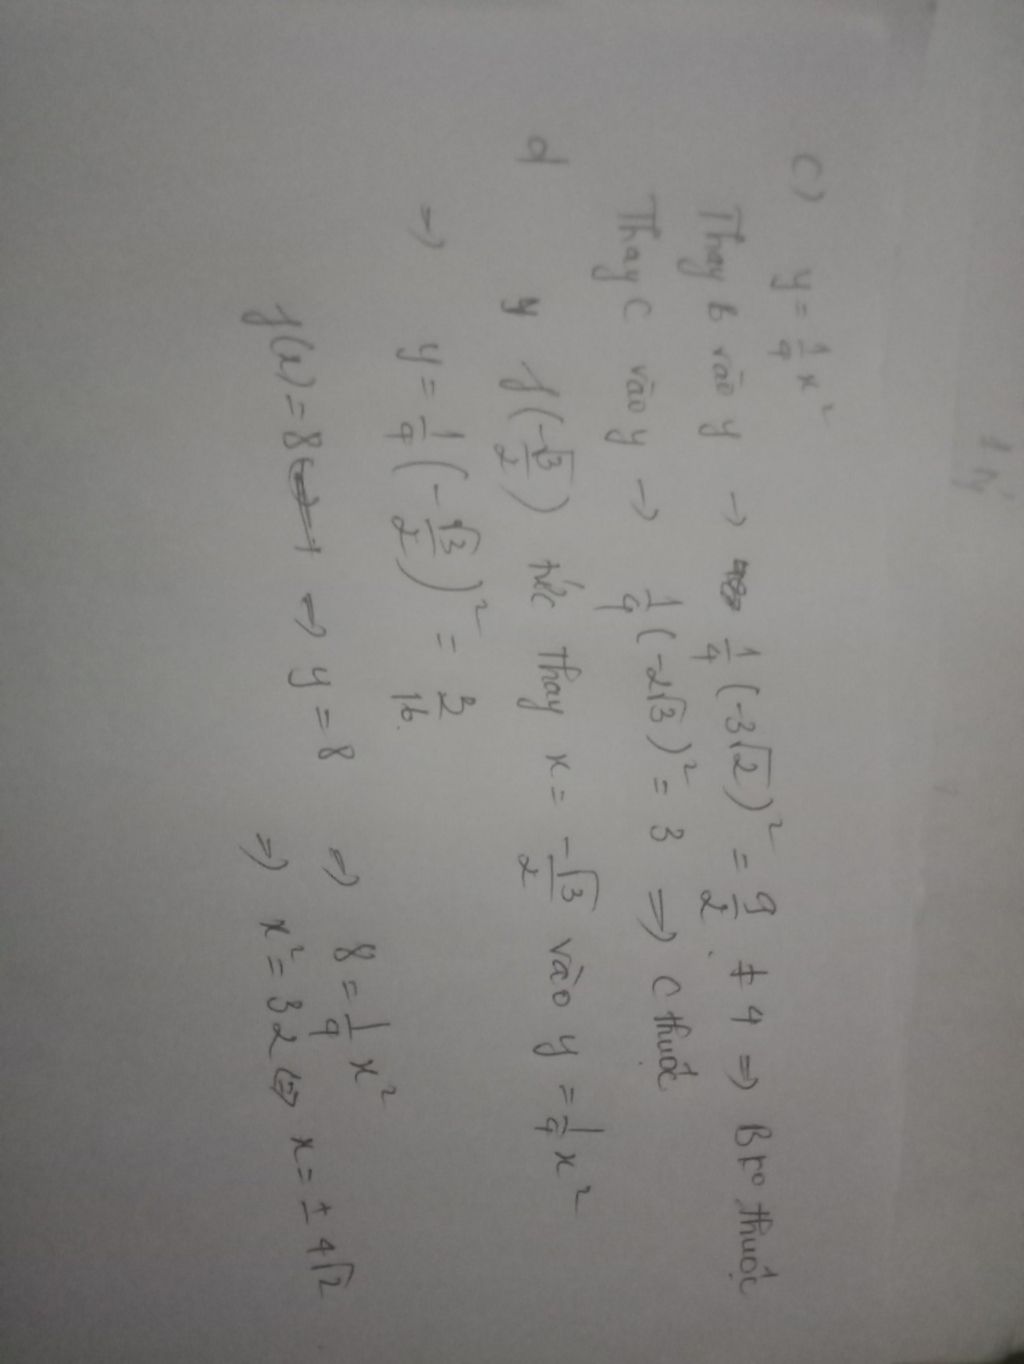 c) y = 1/4 x²
Thay B vào y → 1/4 (-3√2)² = 9/2 ≠ 4 ⇒ B ko thuộc
Thay C vào y → 1/4 (-2√3)² = 3 ⇒ C thuộc
d y f(-√3/2) tức thay x = -√3/2 vào y = 1/4 x²
⇒ y = 1/4 (-√3/2)² = 3/16.
f(x) = 8 ⇒ y = 8 ⇒ 8 = 1/4 x²
⇒ x² = 32 ⇔ x = ± 4√2